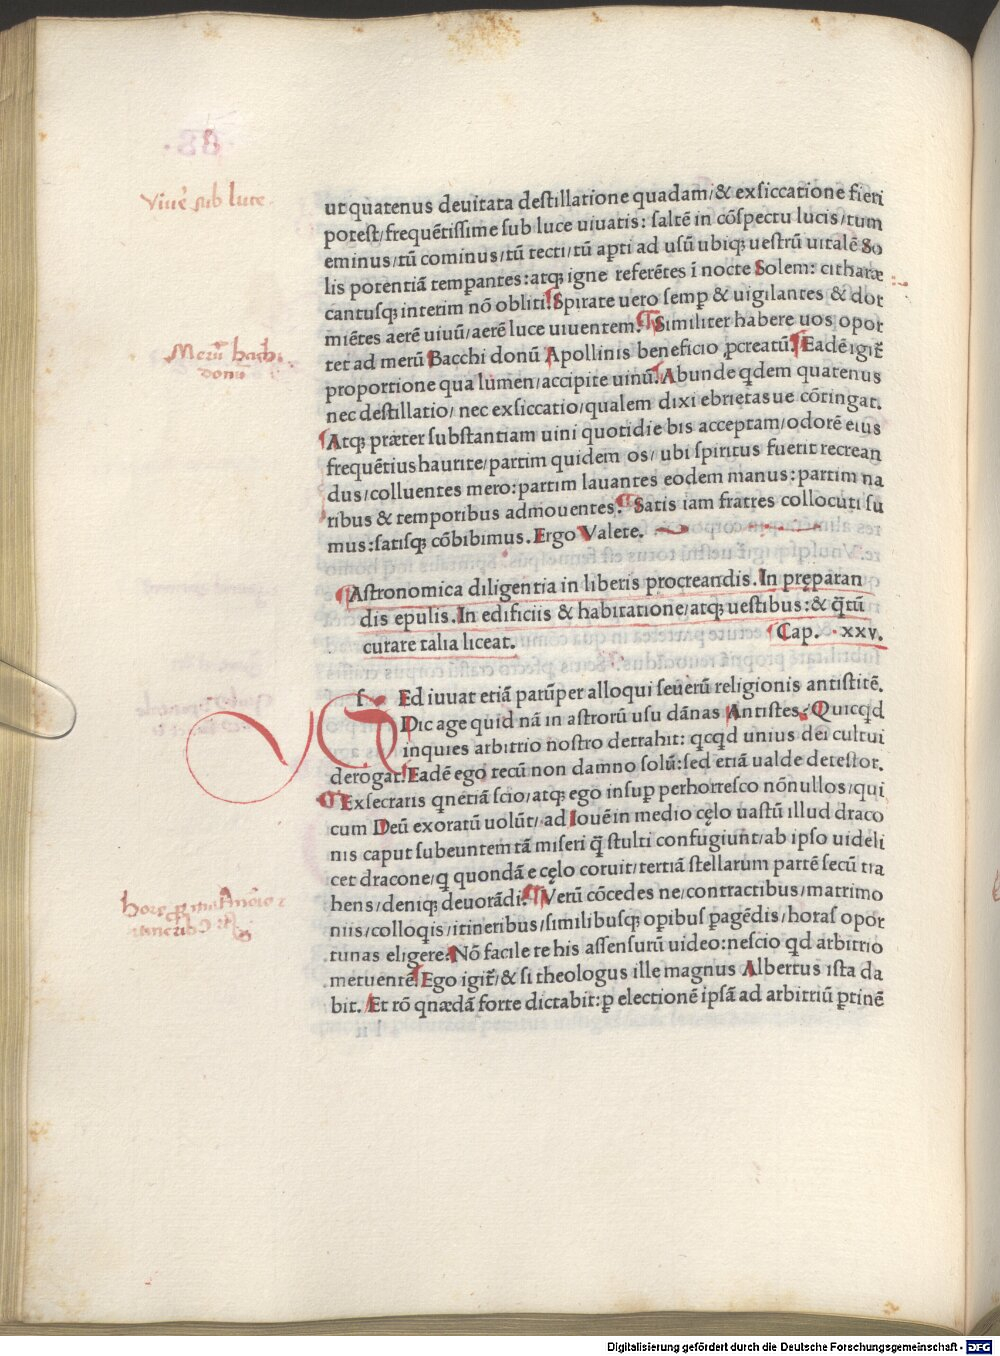 Viuē sub luce
ut quatenus deuitata destillatione quadam/& exsiccatione fieri
potest/frequētissime sub luce uiuatis: saltē in cōspectu lucis/tum
eminus/tū cominus/tū tecti/tū apti ad usū ubiqꝫ uestrū uitalē So
lis potentiā temperantes: atqꝫ igne referētes ī nocte Solem: citharæ
cantusqꝫ interim nō obliti. Spirate uero semꝑ & uigilantes & dor
miētes aerē uiuū/aerē luce uiuentem. Similiter habere uos opor
tet ad merū Bacchi donū Apollinis beneficio ꝓcreatū. Eadē igit̄
Merū bachi
donū
proportione qua lumen/accipite uinū. Abunde qdem quatenus
nec destillatio/ nec exsiccatio/qualem dixi ebrietasue cōtingat.
Atqꝫ præter substantiam uini quotidie bis acceptam/odorē eius
frequētius haurite/partim quidem os/ ubi spiritus fuerit recrean
dus/colluentes mero: partim lauantes eodem manus: partim na
ribus & temporibus admouentes. Satis iam fratres collocuti su
mus: satisqꝫ cōbibimus. Ergo Valete.
Astronomica diligentia in liberis procreandis. In pręparan
diis epulis. In edificiis & habitatione/atqꝫ uestibus: & q̄tū
curare talia liceat. Cap. xxv.
f Ed iuuat etiā parūper alloqui seuerū religionis antistitē.
Dic age quid nā in astrorū usu dānas Antistes? Quicqd
inquies arbitrio nostro detrahit: qcqd unius dei cultui
derogat. Eadē ego tecū non damno solū: sed etiā ualde detestor.
Exsecraris qnetiā scio/atqꝫ ego insuꝑ perhorresco nōnullos/qui
cum Deū exoratū uolūt/ ad Iouē in medio cęlo uastū illud draco
nis caput subeuntem tā miseri q̄ stulti confugiunt/ab ipso uideli
cet dracone/q quondā e cęlo coruit/tertiā stellarum partē secū tra
hens/deniqꝫ deuorādi. Verū cōcedes ne/contractibus/matrimo
niis/colloqis/itineribus/similibusqꝫ opibus ꝑagēdis/horas opor
tunas eligere. Nō facile te his assensurū uideo: nescio qd arbitrio
metuentē. Ego igit̄/& si theologus ille magnus Albertus ista da
bit. Et rō qnædā forte dictabit: ꝑ electionē ipsā ad arbitriū ꝑtinē
Digitalisierung gefördert durch die Deutsche Forschungsgemeinschaft - DFG